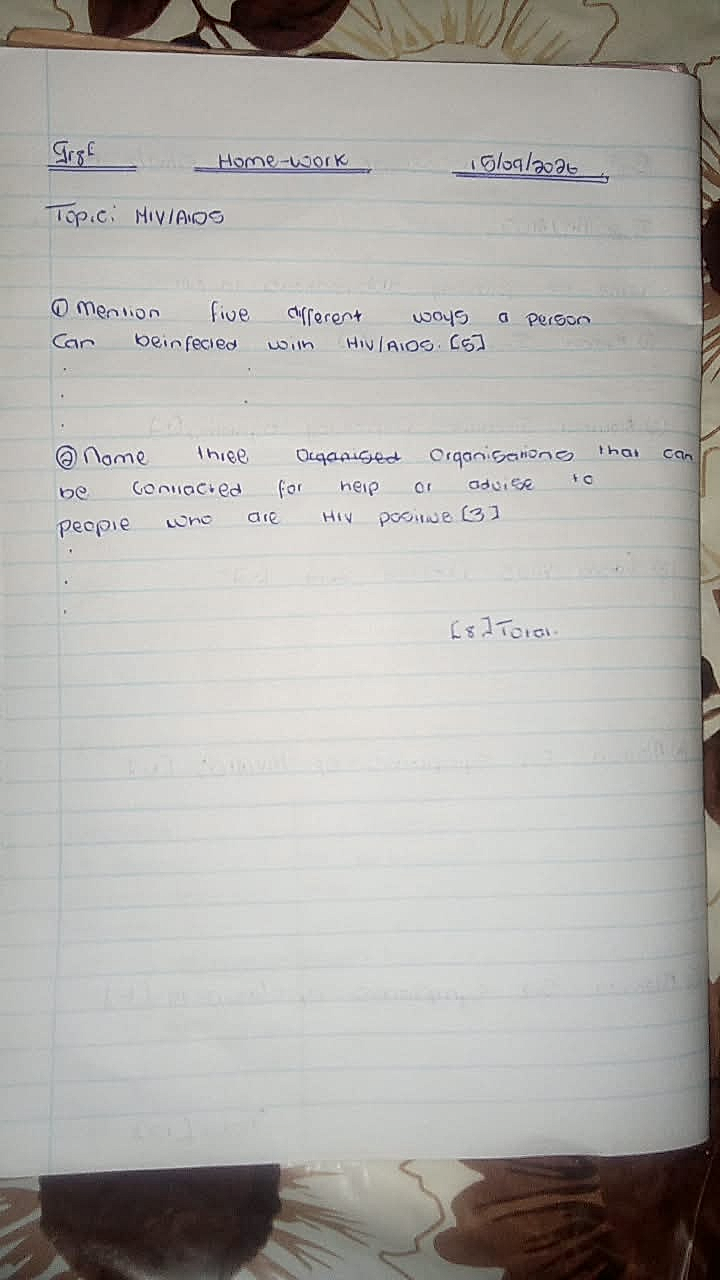 Gr8E Home-work 15/09/2026
Topic: HIV/AIDS
① Mention five different ways a person
Can beinfected with HIV/AIDS. [5]
② Name three Organised Organisations that can
be contacted for help or advise to
people who are HIV positive [3]
[8] Total.